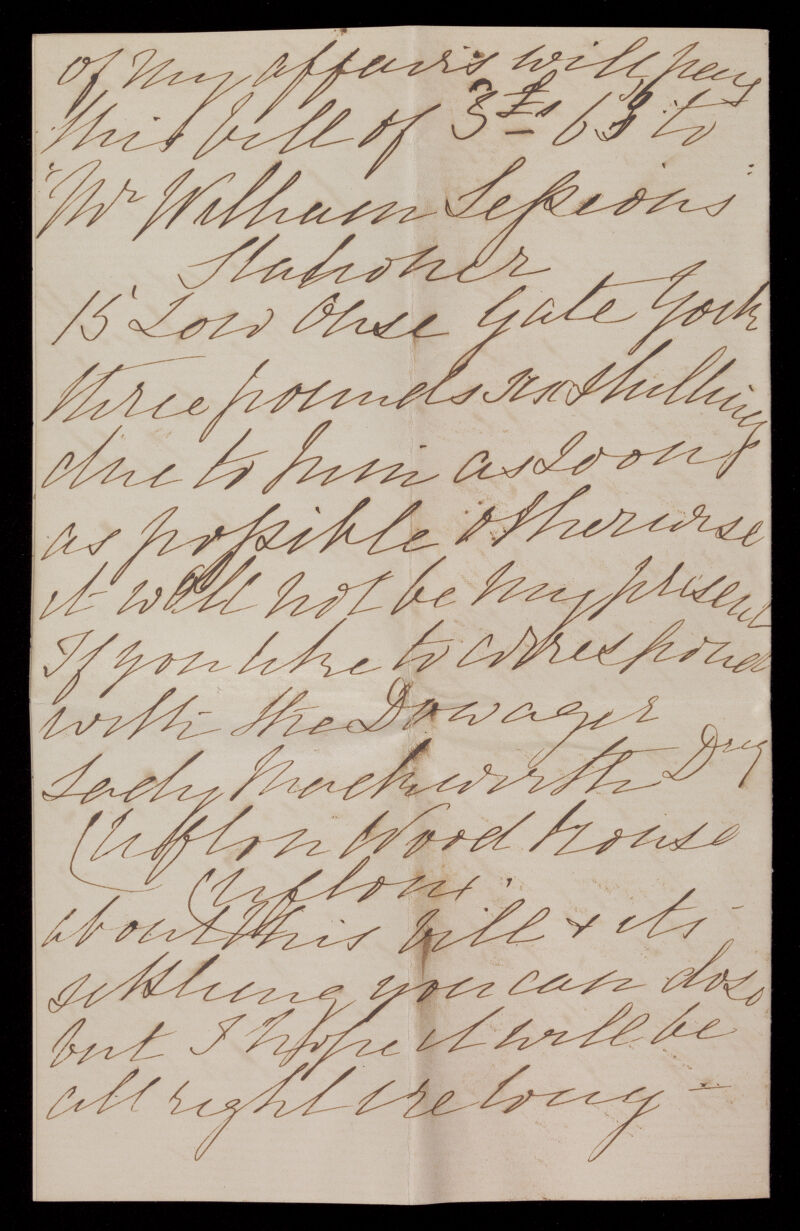 of my affairs will pay
this bill of 3£s 6s to
"Mr William Sessions"
Stationer
15 Low Ouse Gate York
three pounds six shillings
due to him as soon
as possible otherwise
it will not be my present
If you like to correspond
with the Dowager
Lady Mackworth
Clifton Wood House
Clifton
about this bill & its
settling you can do so
but I hope it will be
all right ere long -